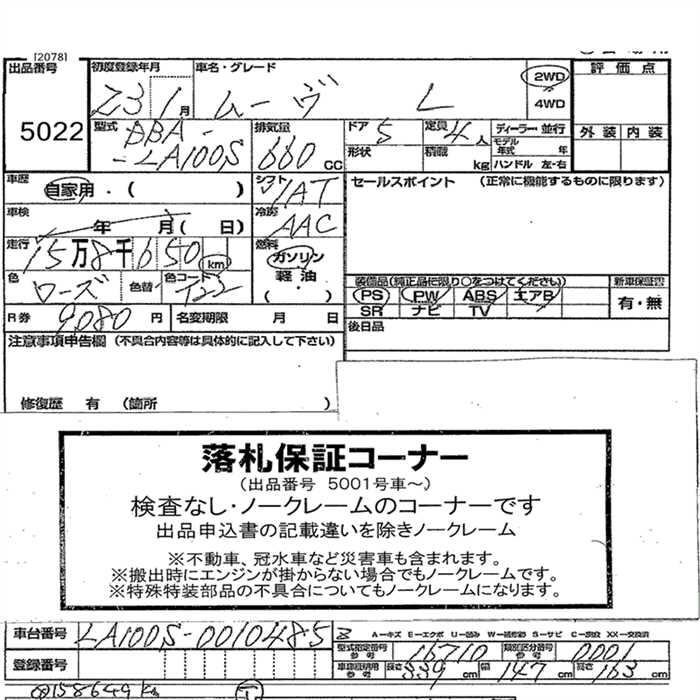 [2078]
出品番号 初度登録年月 車名・グレード 2WD 評価点
Z3 1月 ムーヴ L 4WD
5022 型式 DBA- 排気量 ドア 5 定員 4人 ディーラー・並行 外装 内装
-LA100S 660cc 形状 積載 kg モデル年式 年 ハンドル 左・右
車歴 自家用・( ) シフト IAT セールスポイント (正常に機能するものに限ります)
車検 年 月( 日) 冷房 AAC
走行 15万8千650km 燃料 ガソリン 軽油・( )
色 ローズ 色替 色コード 装備品(純正品に限り○をつけてください) 新車保証書
PS PW ABS エアB 有・無
R券 9080円 名変期限 月 日 SR ナビ TV
注意事項申告欄 (不具合内容等は具体的に記入して下さい) 後日品
修復歴 有 (箇所 )
落札保証コーナー
(出品番号 5001号車~)
検査なし・ノークレームのコーナーです
出品申込書の記載違いを除きノークレーム
※不動車、冠水車など災害車も含まれます。
※搬出時にエンジンが掛からない場合でもノークレームです。
※特殊特装部品の不具合についてもノークレームになります。
車台番号 LA100S-0010485 A-キズ E-エクボ U-凹み W-補修跡 S-サビ C-腐食 XX-交換済
登録番号 型式指定番号 参考 16710 類別区分番号 参考 0001
車庫証明用 参考 長さ 339cm 幅 147cm 高さ 163cm
158649km